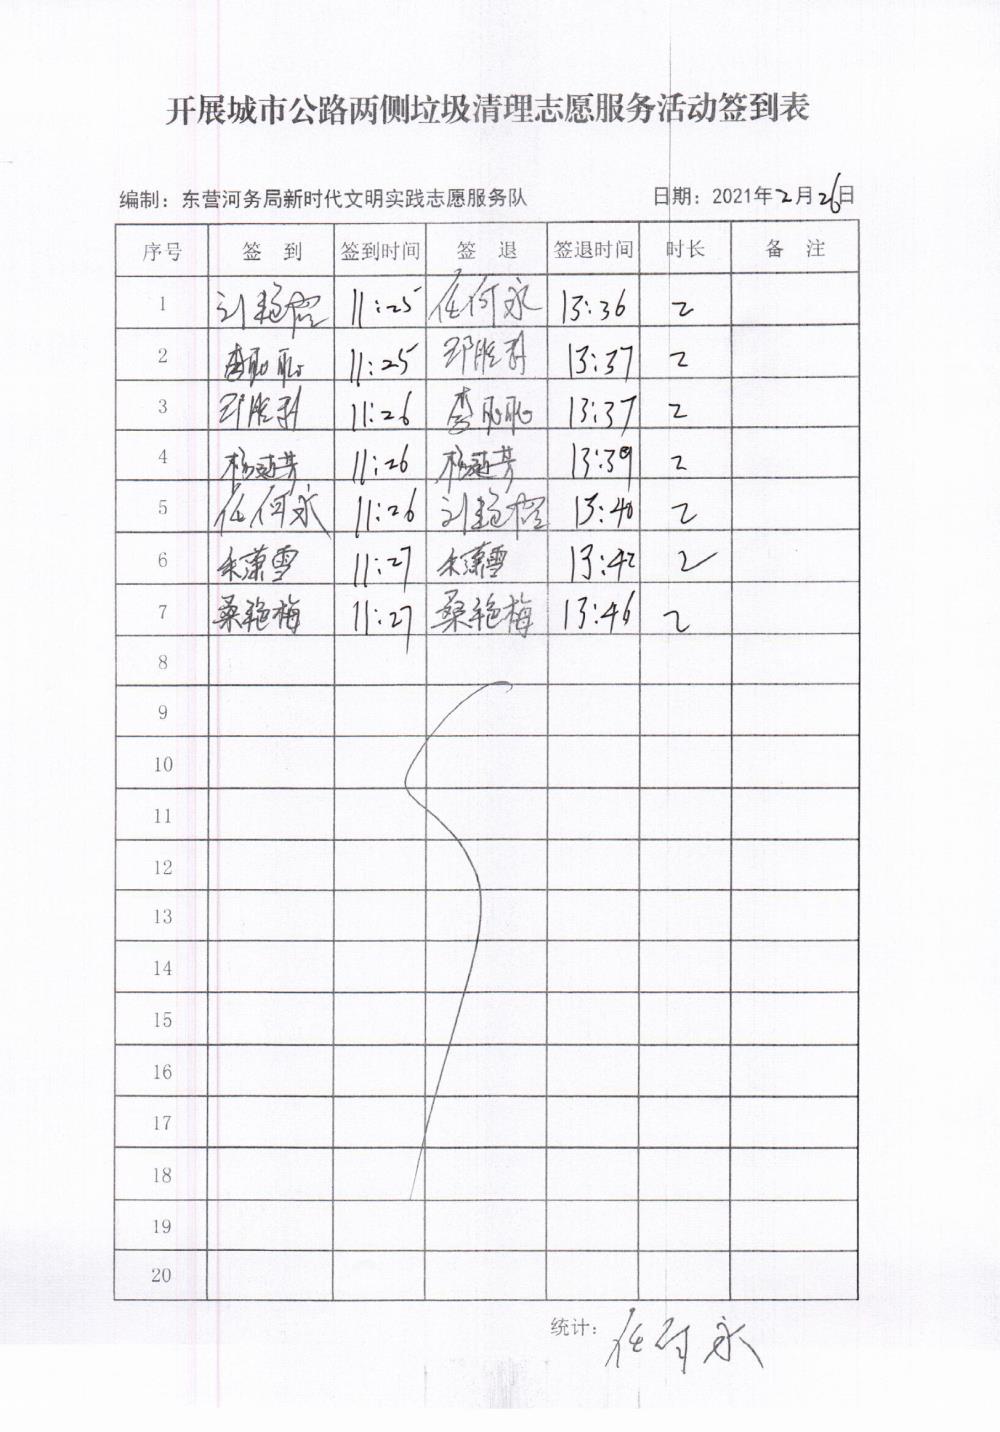 开展城市公路两侧垃圾清理志愿服务活动签到表
编制：东营河务局新时代文明实践志愿服务队 日期：2021年2月26日
序号 签 到 签到时间 签 退 签退时间 时长 备 注
1 刘 11:25 任何永 13:36 2
2 李聪聪 11:25 邓胜利 13:37 2
3 邓胜利 11:26 李聪聪 13:37 2
4 杨延芳 11:26 杨延芳 13:39 2
5 任何永 11:26 刘 13:40 2
6 朱萧雪 11:27 朱萧雪 13:42 2
7 桑艳梅 11:27 桑艳梅 13:46 2
8
9
10
11
12
13
14
15
16
17
18
19
20
统计：任何永